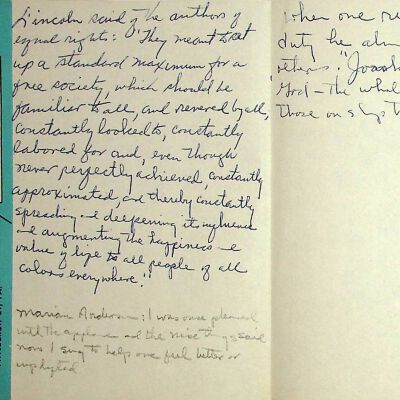 Lincoln said of the authors of
equal rights: "They meant to set
up a standard maximum for a
free society, which should be
familiar to all, and revered by all,
constantly looked to, constantly
labored for and, even though
never perfectly achieved, constantly
approximated, and thereby constantly
spreading & deepening its influence
& augmenting the happiness &
value of life to all people of all
colors everywhere."
Marian Anderson: I was once pleased
with the applause and the nice things said
now I sing to help one feel better or
uplifted
When one
duty he
returns. "Joseph
God – the while
those on ships